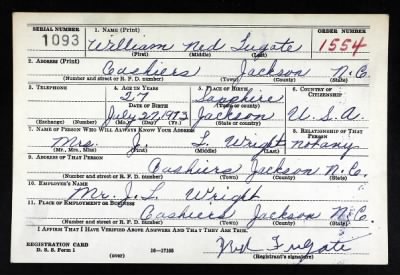 SERIAL NUMBER 1. NAME (Print) ORDER NUMBER
1093 William Ned Fugate 1554
(First) (Middle) (Last)
2. ADDRESS (Print)
Cashiers Jackson N.C.
(Number and street or R. F. D. number) (Town) (County) (State)
3. TELEPHONE 4. AGE IN YEARS 5. PLACE OF BIRTH 6. COUNTRY OF CITIZENSHIP
27 Sapphire
DATE OF BIRTH (Town or county)
July 27, 1913 Jackson U.S.A.
(Exchange) (Number) (Mo.) (Day) (Yr.) (State or country)
7. NAME OF PERSON WHO WILL ALWAYS KNOW YOUR ADDRESS 8. RELATIONSHIP OF THAT PERSON
Mrs. J. L. Wright
(Mr., Mrs., Miss) (First) (Middle) (Last)
9. ADDRESS OF THAT PERSON
Cashiers Jackson N.C.
(Number and street or R. F. D. number) (Town) (County) (State)
10. EMPLOYER'S NAME
Mr. J. L. Wright
11. PLACE OF EMPLOYMENT OR BUSINESS
Cashiers Jackson N.C.
(Number and street or R. F. D. number) (Town) (County) (State)
I AFFIRM THAT I HAVE VERIFIED ABOVE ANSWERS AND THAT THEY ARE TRUE.
REGISTRATION CARD
D. S. S. Form 1 (over) 16-17105 Ned Fugate
(Registrant's signature)